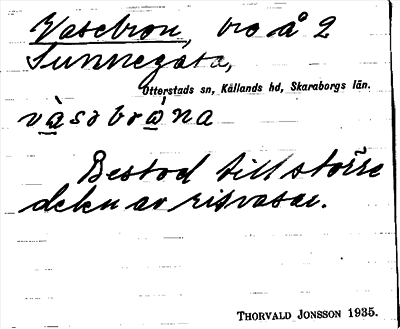 Vasebron, bro å 2
Sunnegata,
Otterstads sn, Kållands hd, Skaraborgs län.
vàsabrὼna
Bestod till större
delen av risvasar.
THORVALD JONSSON 1935.